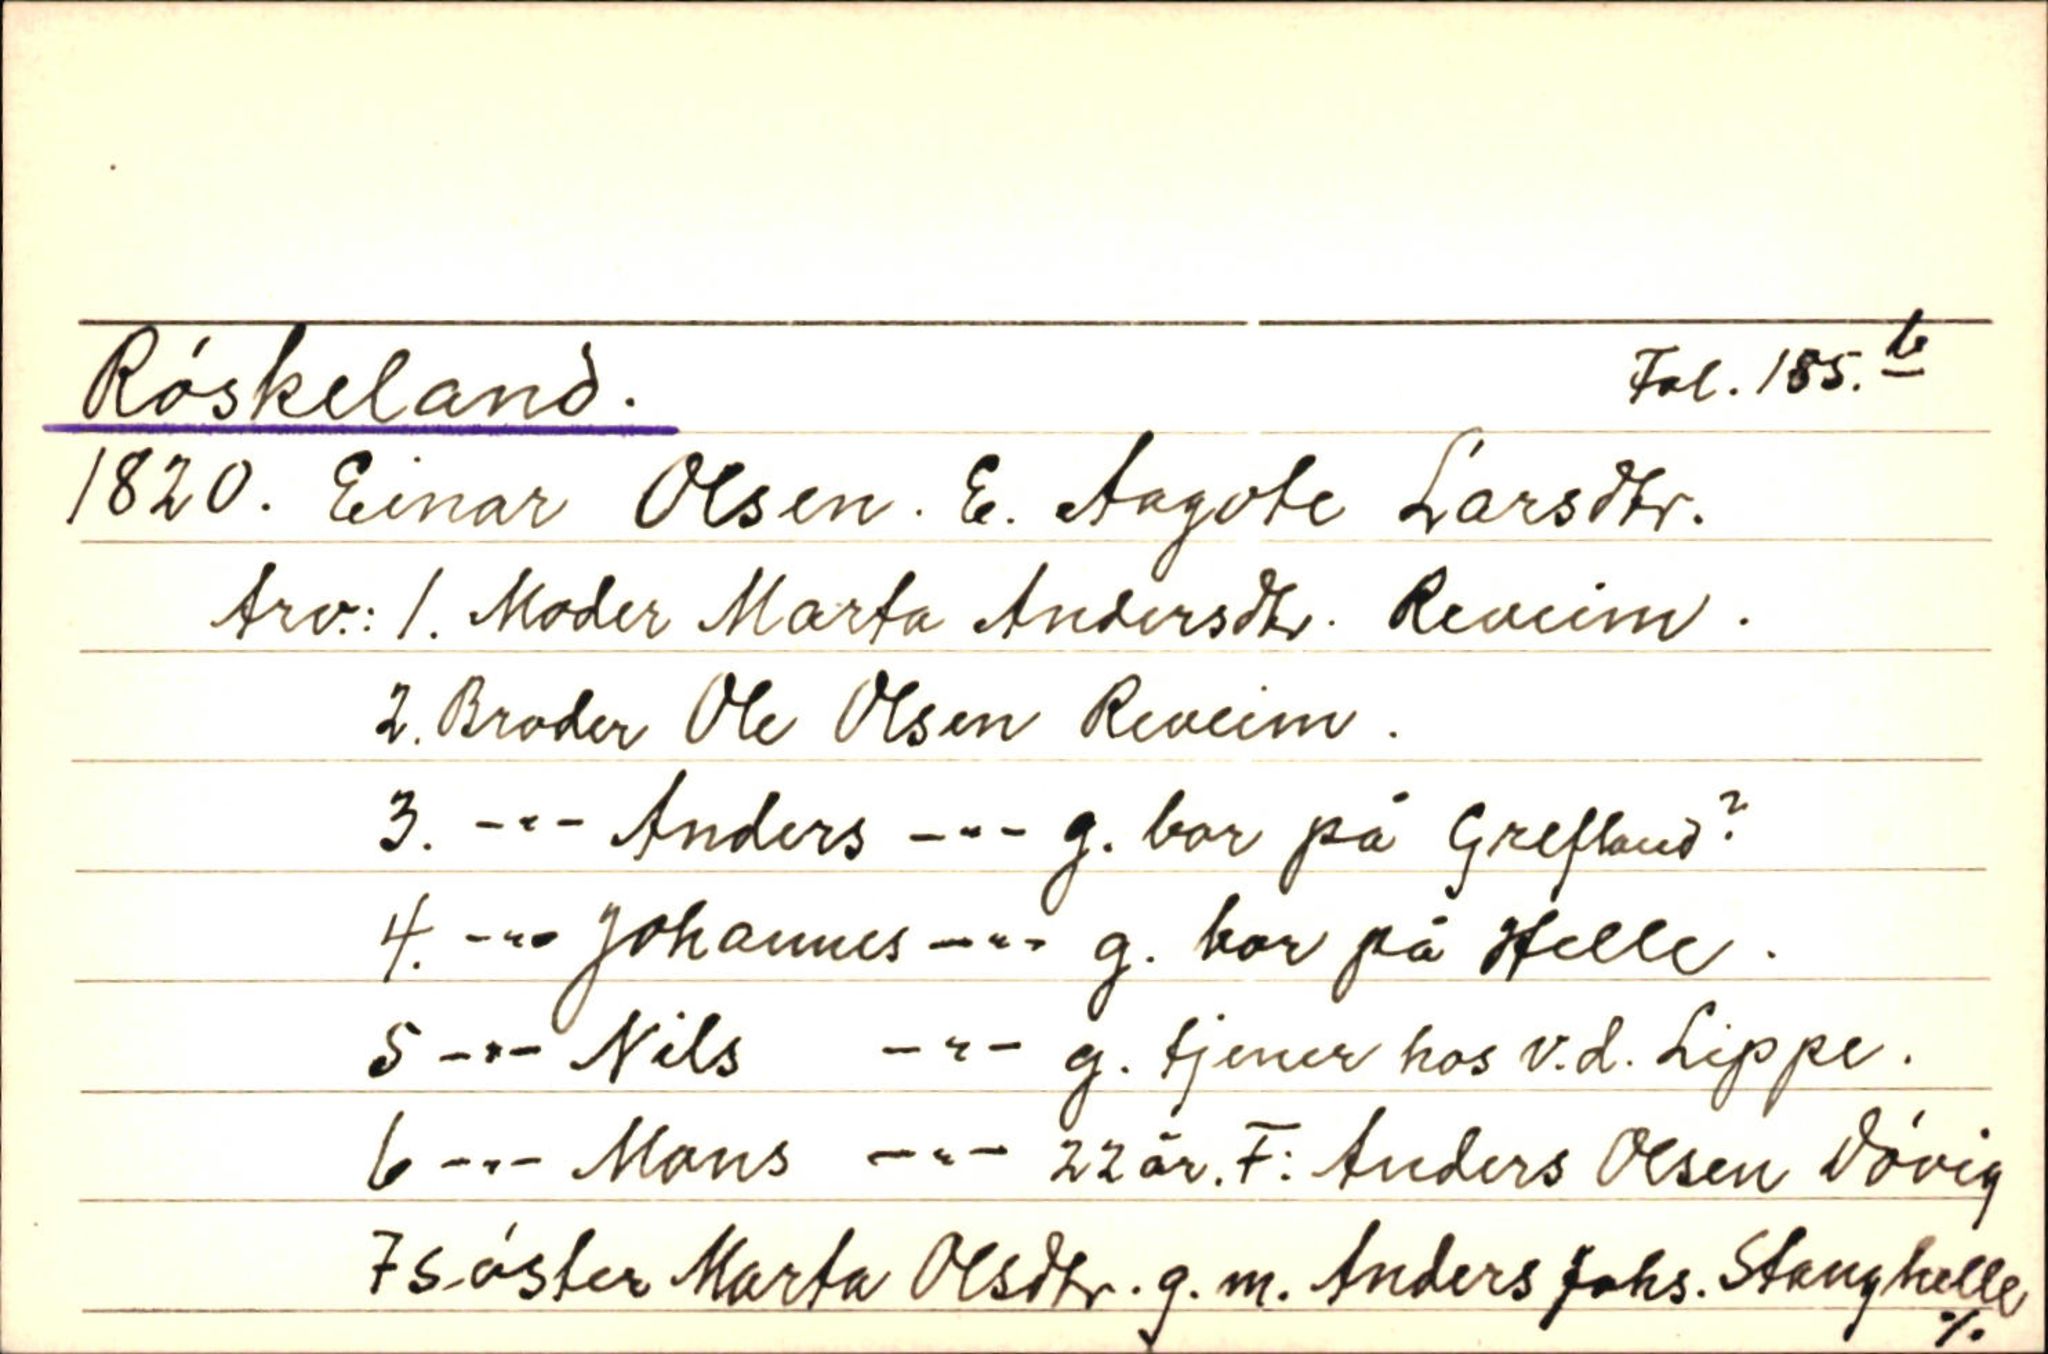 Róskeland. Fol. 185.b
1820. Einar Olsen. E. Aagote Larsdtr.
Arv.: 1. Moder Marta Andersdtr. Reveim.
2. Broder Ole Olsen Reveim.
3. -"- Anders -"- g. bor på Grefland?
4. -"- Johannes -"- g. bor på Helle.
5 -"- Nils -"- g. tjener hos v.d. Lippe.
6 -"- Mons -"- 22 år. F: Anders Olsen Dóvig
7 Sóster Marta Olsdtr. g. m. Anders Johs. Stanghelle
%.